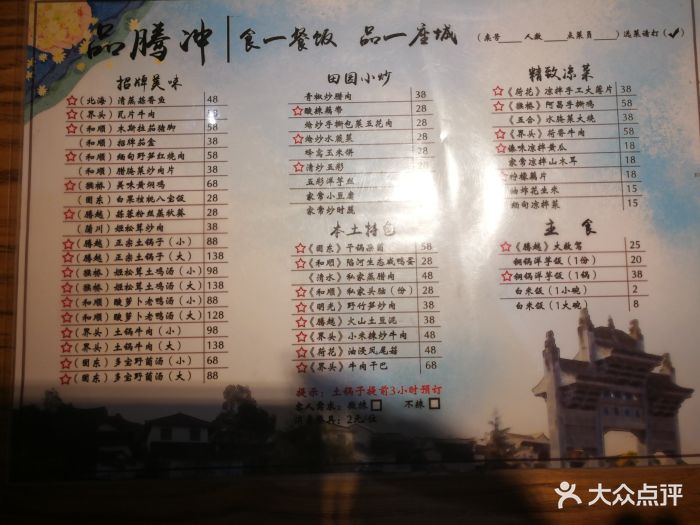 品腾冲
食一餐饭 品一座城
(桌号 人数 点菜员 )选菜请打(✓)
招牌美味
☆(北海)清蒸菇香鱼 48
☆(界头)瓦片牛肉
☆(和顺)木斯拉茄猪脚 58
(和顺)招牌茄盒 38
☆(和顺)缅甸野笋红烧肉 58
(和顺)腊腌菜炒肉片 38
☆(猴桥)美味黄焖鸡 68
(固东)白果核桃八宝饭 28
☆(腾越)蒜蓉粉丝蒸秋葵 28
(蒲川)姬松茸炒肉 38
☆(腾越)正宗土锅子(小) 88
☆(腾越)正宗土锅子(大) 138
☆(猴桥)姬松茸土鸡汤(小) 98
☆(猴桥)姬松茸土鸡汤(大) 138
☆(和顺)酸萝卜老鸭汤(小) 88
☆(和顺)酸萝卜老鸭汤(大) 128
☆(界头)土锅牛肉(小) 98
☆(界头)土锅牛肉(大) 138
☆(固东)多宝野菌汤(小) 68
☆(固东)多宝野菌汤(大) 88
田园小炒
青椒炒腊肉 38
☆酸辣藕带 28
炝炒手撕包菜五花肉 28
☆炝炒水蕨菜 28
蜂窝玉米饼 28
☆清炒五彩 28
五彩洋芋丝
家常小豆腐
家常炒时蔬
本土特色
☆《固东》干锅杂菌 58
☆《和顺》陷河生态咸鸭蛋 28
《清水》私家蒸腊肉 48
☆《和顺》私家头脑(份) 28
☆《明光》野竹笋炒肉 38
☆《腾越》火山土豆泥 38
☆《界头》小米辣炒牛肉 48
☆《荷花》油浸凤尾菇 48
☆《界头》牛肉干巴 68
提示:土锅子提前3小时预订
客人需求:微辣□ 不辣□
消毒餐具:2元/位
精致凉菜
☆《荷花》凉拌手工大薄片 38
☆《猴桥》阿昌手撕鸡 58
《五合》水腌菜火烧 38
☆《界头》荷香牛肉 58
☆傣味凉拌黄瓜 18
家常凉拌山木耳 18
☆柠檬藕片 18
油炸花生米 15
缅甸凉拌菜 15
主食
☆《腾越》大救驾 25
铜锅洋芋饭(1份) 20
☆铜锅洋芋饭(1锅) 38
白米饭(1小碗) 2
白米饭(1大碗) 8
大众点评